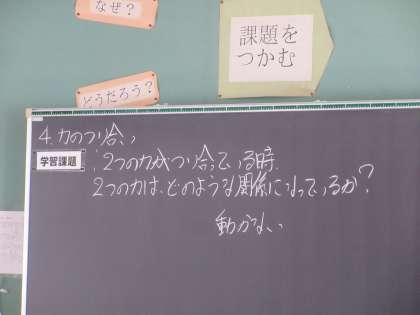 なぜ？
どうだろう？
課題を
つかむ
4. 力のつり合い
学習課題
2つの力がつり合っている時、
2つの力は、どのような関係になっているか？
動かない